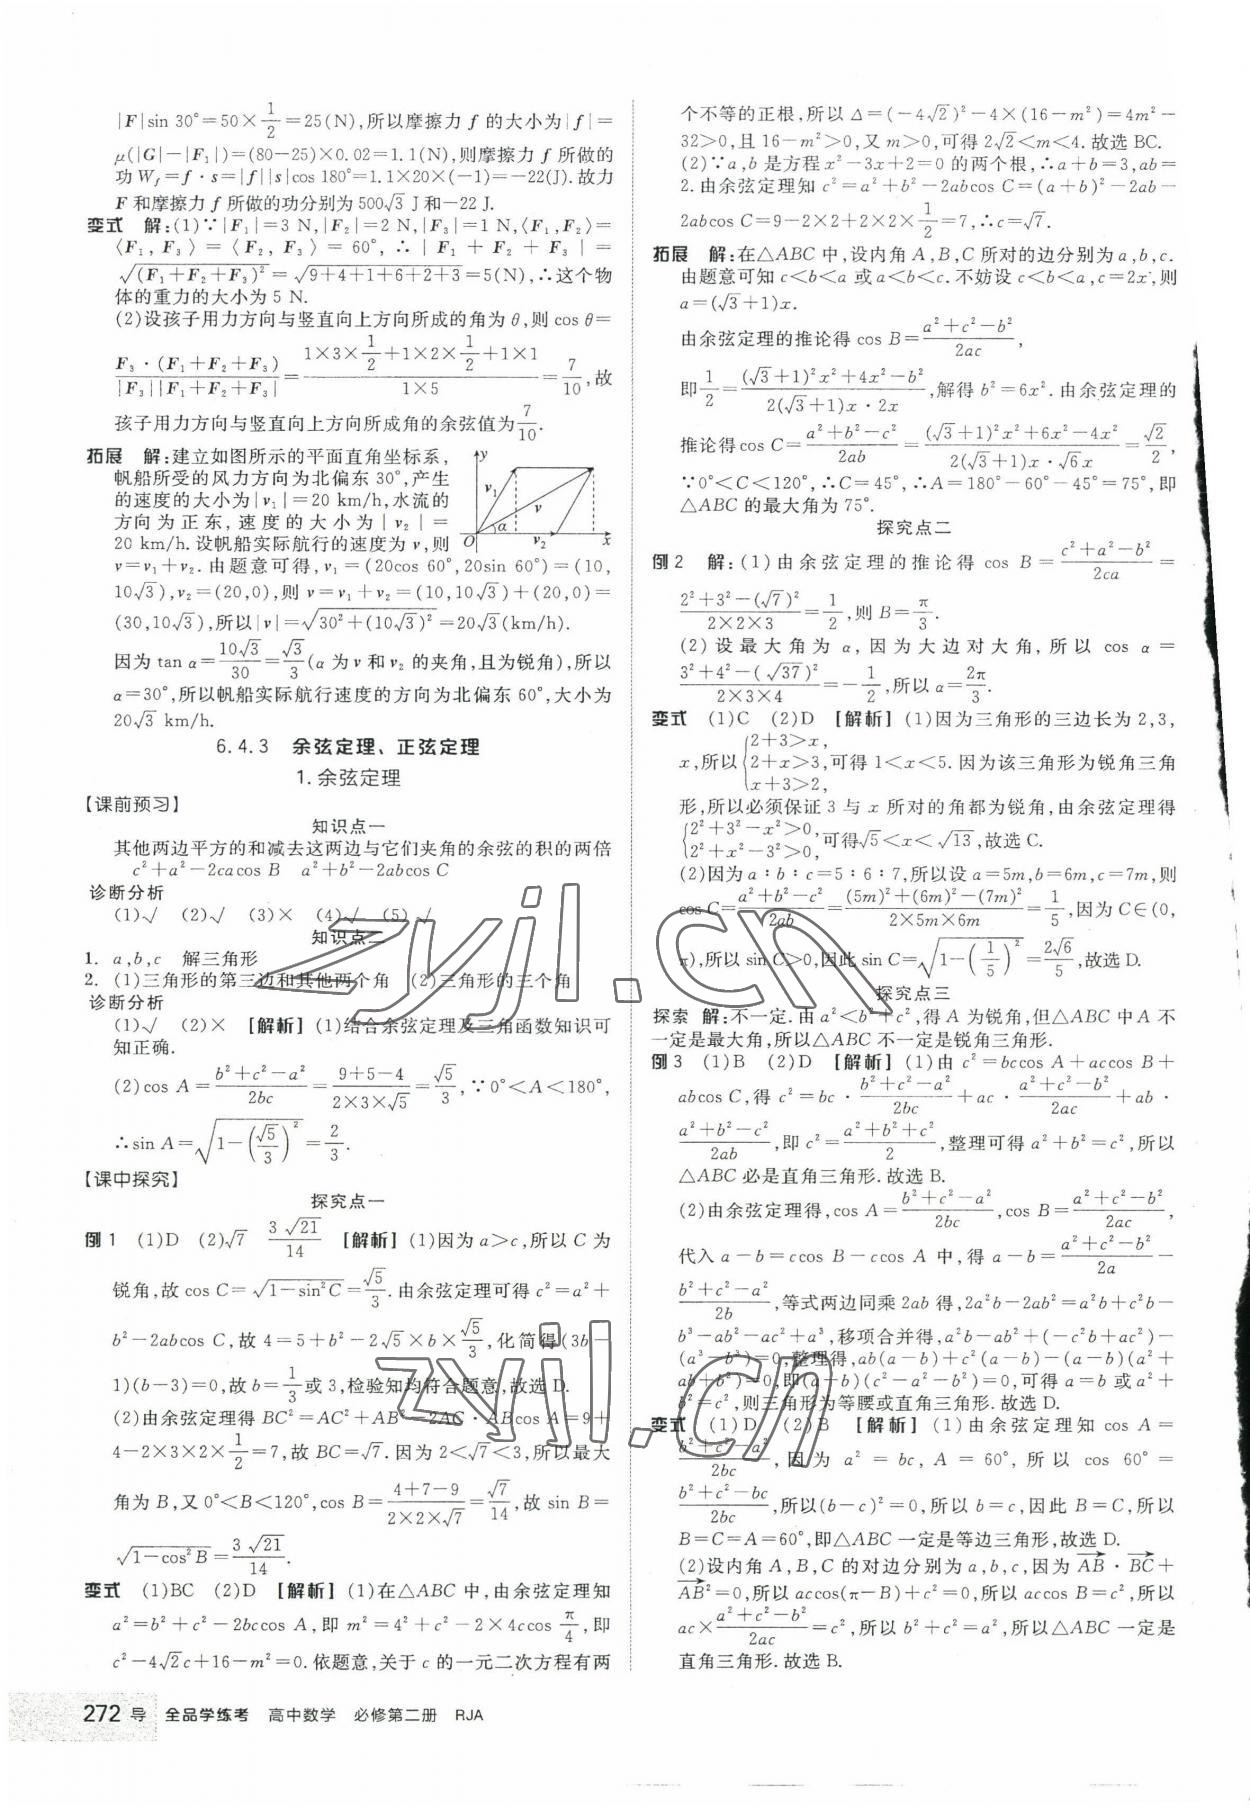 |F|sin 30°=50×1/2=25(N),所以摩擦力 f 的大小为|f|=
μ(|G|-|F₁|)=(80-25)×0.02=1.1(N),则摩擦力 f 所做的
功 W_f=f·s=|f||s|cos 180°=1.1×20×(-1)=-22(J). 故力
F 和摩擦力 f 所做的功分别为 500√3 J 和-22 J.
变式 解:(1)∵|F₁|=3 N,|F₂|=2 N,|F₃|=1 N,⟨F₁,F₂⟩=
⟨F₁,F₃⟩=⟨F₂,F₃⟩=60°,∴|F₁+F₂+F₃|=
√(F₁+F₂+F₃)²=√9+4+1+6+2+3=5(N),∴这个物
体的重力的大小为 5 N.
(2)设孩子用力方向与竖直向上方向所成的角为θ,则 cos θ=
F₃·(F₁+F₂+F₃)/|F₃||F₁+F₂+F₃|=(1×3×1/2+1×2×1/2+1×1)/(1×5)=7/10,故
孩子用力方向与竖直向上方向所成角的余弦值为7/10.
拓展 解:建立如图所示的平面直角坐标系,
帆船所受的风力方向为北偏东 30°,产生
的速度的大小为|v₁|=20 km/h,水流的
方向为正东,速度的大小为|v₂|=
20 km/h.设帆船实际航行的速度为 v,则
y
v₁
v
α
O
v₂
x
v=v₁+v₂. 由题意可得,v₁=(20cos 60°,20sin 60°)=(10,
10√3),v₂=(20,0),则 v=v₁+v₂=(10,10√3)+(20,0)=
(30,10√3),所以|v|=√30²+(10√3)²=20√3(km/h).
因为 tan α=10√3/30=√3/3(α 为 v 和 v₂ 的夹角,且为锐角),所以
α=30°,所以帆船实际航行速度的方向为北偏东 60°,大小为
20√3 km/h.
6.4.3 余弦定理、正弦定理
1.余弦定理
【课前预习】
知识点一
其他两边平方的和减去这两边与它们夹角的余弦的积的两倍
c²+a²-2cacos B a²+b²-2abcos C
诊断分析
(1)√ (2)√ (3)× (4)√ (5)√
知识点二
1. a,b,c 解三角形
2. (1)三角形的第三边和其他两个角 (2)三角形的三个角
诊断分析
(1)√ (2)× [解析] (1)结合余弦定理及三角函数知识可
知正确.
(2)cos A=(b²+c²-a²)/2bc=(9+5-4)/(2×3×√5)=√5/3,∵0°<A<180°,
∴sin A=√1-(√5/3)²=2/3.
【课中探究】
探究点一
例 1 (1)D (2)√7 3√21/14 [解析] (1)因为 a>c,所以 C 为
锐角,故 cos C=√1-sin²C=√5/3. 由余弦定理可得 c²=a²+
b²-2abcos C,故 4=5+b²-2√5×b×√5/3,化简得(3b-
1)(b-3)=0,故 b=1/3或 3,检验知均符合题意,故选 D.
(2)由余弦定理得 BC²=AC²+AB²-2AC·ABcos A=9+
4-2×3×2×1/2=7,故 BC=√7. 因为 2<√7<3,所以最大
角为 B,又 0°<B<120°,cos B=(4+7-9)/(2×2×√7)=√7/14,故 sin B=
√1-cos²B=3√21/14.
变式 (1)BC (2)D [解析] (1)在△ABC 中,由余弦定理知
a²=b²+c²-2bccos A,即 m²=4²+c²-2×4ccos π/4,即
c²-4√2c+16-m²=0. 依题意,关于 c 的一元二次方程有两
个不等的正根,所以 Δ=(-4√2)²-4×(16-m²)=4m²-
32>0,且 16-m²>0,又 m>0,可得 2√2<m<4. 故选 BC.
(2)∵a,b 是方程 x²-3x+2=0 的两个根,∴a+b=3,ab=
2. 由余弦定理知 c²=a²+b²-2abcos C=(a+b)²-2ab-
2abcos C=9-2×2+2×2×1/2=7,∴c=√7.
拓展 解:在△ABC 中,设内角 A,B,C 所对的边分别为 a,b,c.
由题意可知 c<b<a 或 a<b<c. 不妨设 c<b<a,c=2x,则
a=(√3+1)x.
由余弦定理的推论得 cos B=(a²+c²-b²)/2ac,
即1/2=((√3+1)²x²+4x²-b²)/(2(√3+1)x·2x),解得 b²=6x². 由余弦定理的
推论得 cos C=(a²+b²-c²)/2ab=((√3+1)²x²+6x²-4x²)/(2(√3+1)x·√6x)=√2/2,
∵0°<C<120°,∴C=45°,∴A=180°-60°-45°=75°,即
△ABC 的最大角为 75°.
探究点二
例 2 解:(1)由余弦定理的推论得 cos B=(c²+a²-b²)/2ca=
(2²+3²-(√7)²)/(2×2×3)=1/2,则 B=π/3.
(2)设最大角为 α,因为大边对大角,所以 cos α=
(3²+4²-(√37)²)/(2×3×4)=-1/2,所以 α=2π/3.
变式 (1)C (2)D [解析] (1)因为三角形的三边长为 2,3,
x,所以{2+3>x, 2+x>3, x+3>2,可得 1<x<5. 因为该三角形为锐角三角
形,所以必须保证 3 与 x 所对的角都为锐角,由余弦定理得
{2²+3²-x²>0, 2²+x²-3²>0,可得√5<x<√13,故选 C.
(2)因为 a∶b∶c=5∶6∶7,所以设 a=5m,b=6m,c=7m,则
cos C=(a²+b²-c²)/2ab=((5m)²+(6m)²-(7m)²)/(2×5m×6m)=1/5,因为 C∈(0,
π),所以 sin C>0,因此 sin C=√1-(1/5)²=2√6/5,故选 D.
探究点三
探索 解:不一定. 由 a²<b²+c²,得 A 为锐角,但△ABC 中 A 不
一定是最大角,所以△ABC 不一定是锐角三角形.
例 3 (1)B (2)D [解析] (1)由 c²=bccos A+accos B+
abcos C,得 c²=bc·(b²+c²-a²)/2bc+ac·(a²+c²-b²)/2ac+ab·
(a²+b²-c²)/2ab,即 c²=(a²+b²+c²)/2,整理可得 a²+b²=c²,所以
△ABC 必是直角三角形. 故选 B.
(2)由余弦定理得,cos A=(b²+c²-a²)/2bc,cos B=(a²+c²-b²)/2ac,
代入 a-b=ccos B-ccos A 中,得 a-b=(a²+c²-b²)/2a-
(b²+c²-a²)/2b,等式两边同乘 2ab 得,2a²b-2ab²=a²b+c²b-
b³-ab²-ac²+a³,移项合并得,a²b-ab²+(-c²b+ac²)-
(a³-b³)=0,整理得,ab(a-b)+c²(a-b)-(a-b)(a²+
ab+b²)=0,即(a-b)(c²-a²-b²)=0,可得 a=b 或 a²+
b²=c²,则三角形为等腰或直角三角形. 故选 D.
变式 (1)D (2)B [解析] (1)由余弦定理知 cos A=
(b²+c²-a²)/2bc,因为 a²=bc,A=60°,所以 cos 60°=
(b²+c²-bc)/2bc,所以(b-c)²=0,所以 b=c,因此 B=C,所以
B=C=A=60°,即△ABC 一定是等边三角形,故选 D.
(2)设内角 A,B,C 的对边分别为 a,b,c,因为 AB·BC+
AB²=0,所以 accos(π-B)+c²=0,所以 accos B=c²,所以
ac×(a²+c²-b²)/2ac=c²,所以 b²+c²=a²,所以△ABC 一定是
直角三角形. 故选 B.
272 导 全品学练考 高中数学 必修第二册 RJA
zyjl.cn
zyjl.cn